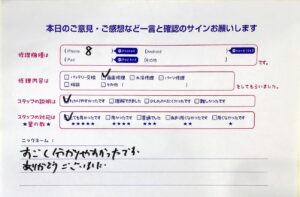 本日のご意見・ご感想など一言と確認のサインお願いします
修理機種は
iPhone 8
Android
iPad
その他
です。
修理内容は
バッテリー交換 画面修理 水没修理 パーツ修理
相談 その他
をしてもらいました。
スタッフの説明は
わかりやすかったです 理解できました 少しわかりにくかったです 難しかったです
スタッフの対応は
★星の数★
とても良かったです 良かったです 普通でした あまり良くなかったです 悪かったです
★★★★★ ★★★★ ★★★ ★★ ★
ニックネーム:
すごく分かりやすかったです。
ありがとうございました